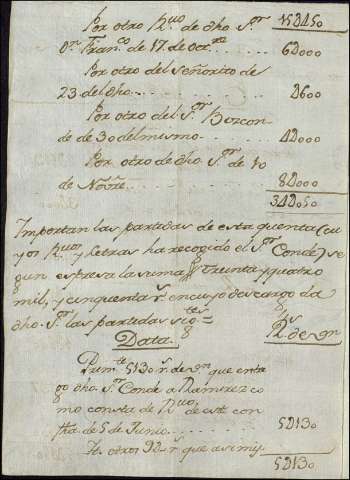 Por otro R.vo de dho S.r 15U450
D.n Fran.co de 17 de Oct.re 6U000
Por otro del Señorito de
23 del dho 2U600
Por otro del S.r Vizcon
de de 30 del mismo 4U000
Por otro de dho S.r de 10
de Nov.re 8U000
34U050
Importan las partidas de esta quenta (cu
yos R.vos y letras ha recogido el S.r Conde) se
gun espresa la suma treinta y quatro
mil, y cinquenta r.s en cuyo descargo da
dho S.r las partidas sig.tes
Data. R.s de v.n
Prim.te 5130 r.s de v.n que entre
gó dho S.r Conde a Ramirez co
mo consta de R.vo de este con
fha de 5 de Junio 5U130
It. otros 32 r.s que a mi
5U130